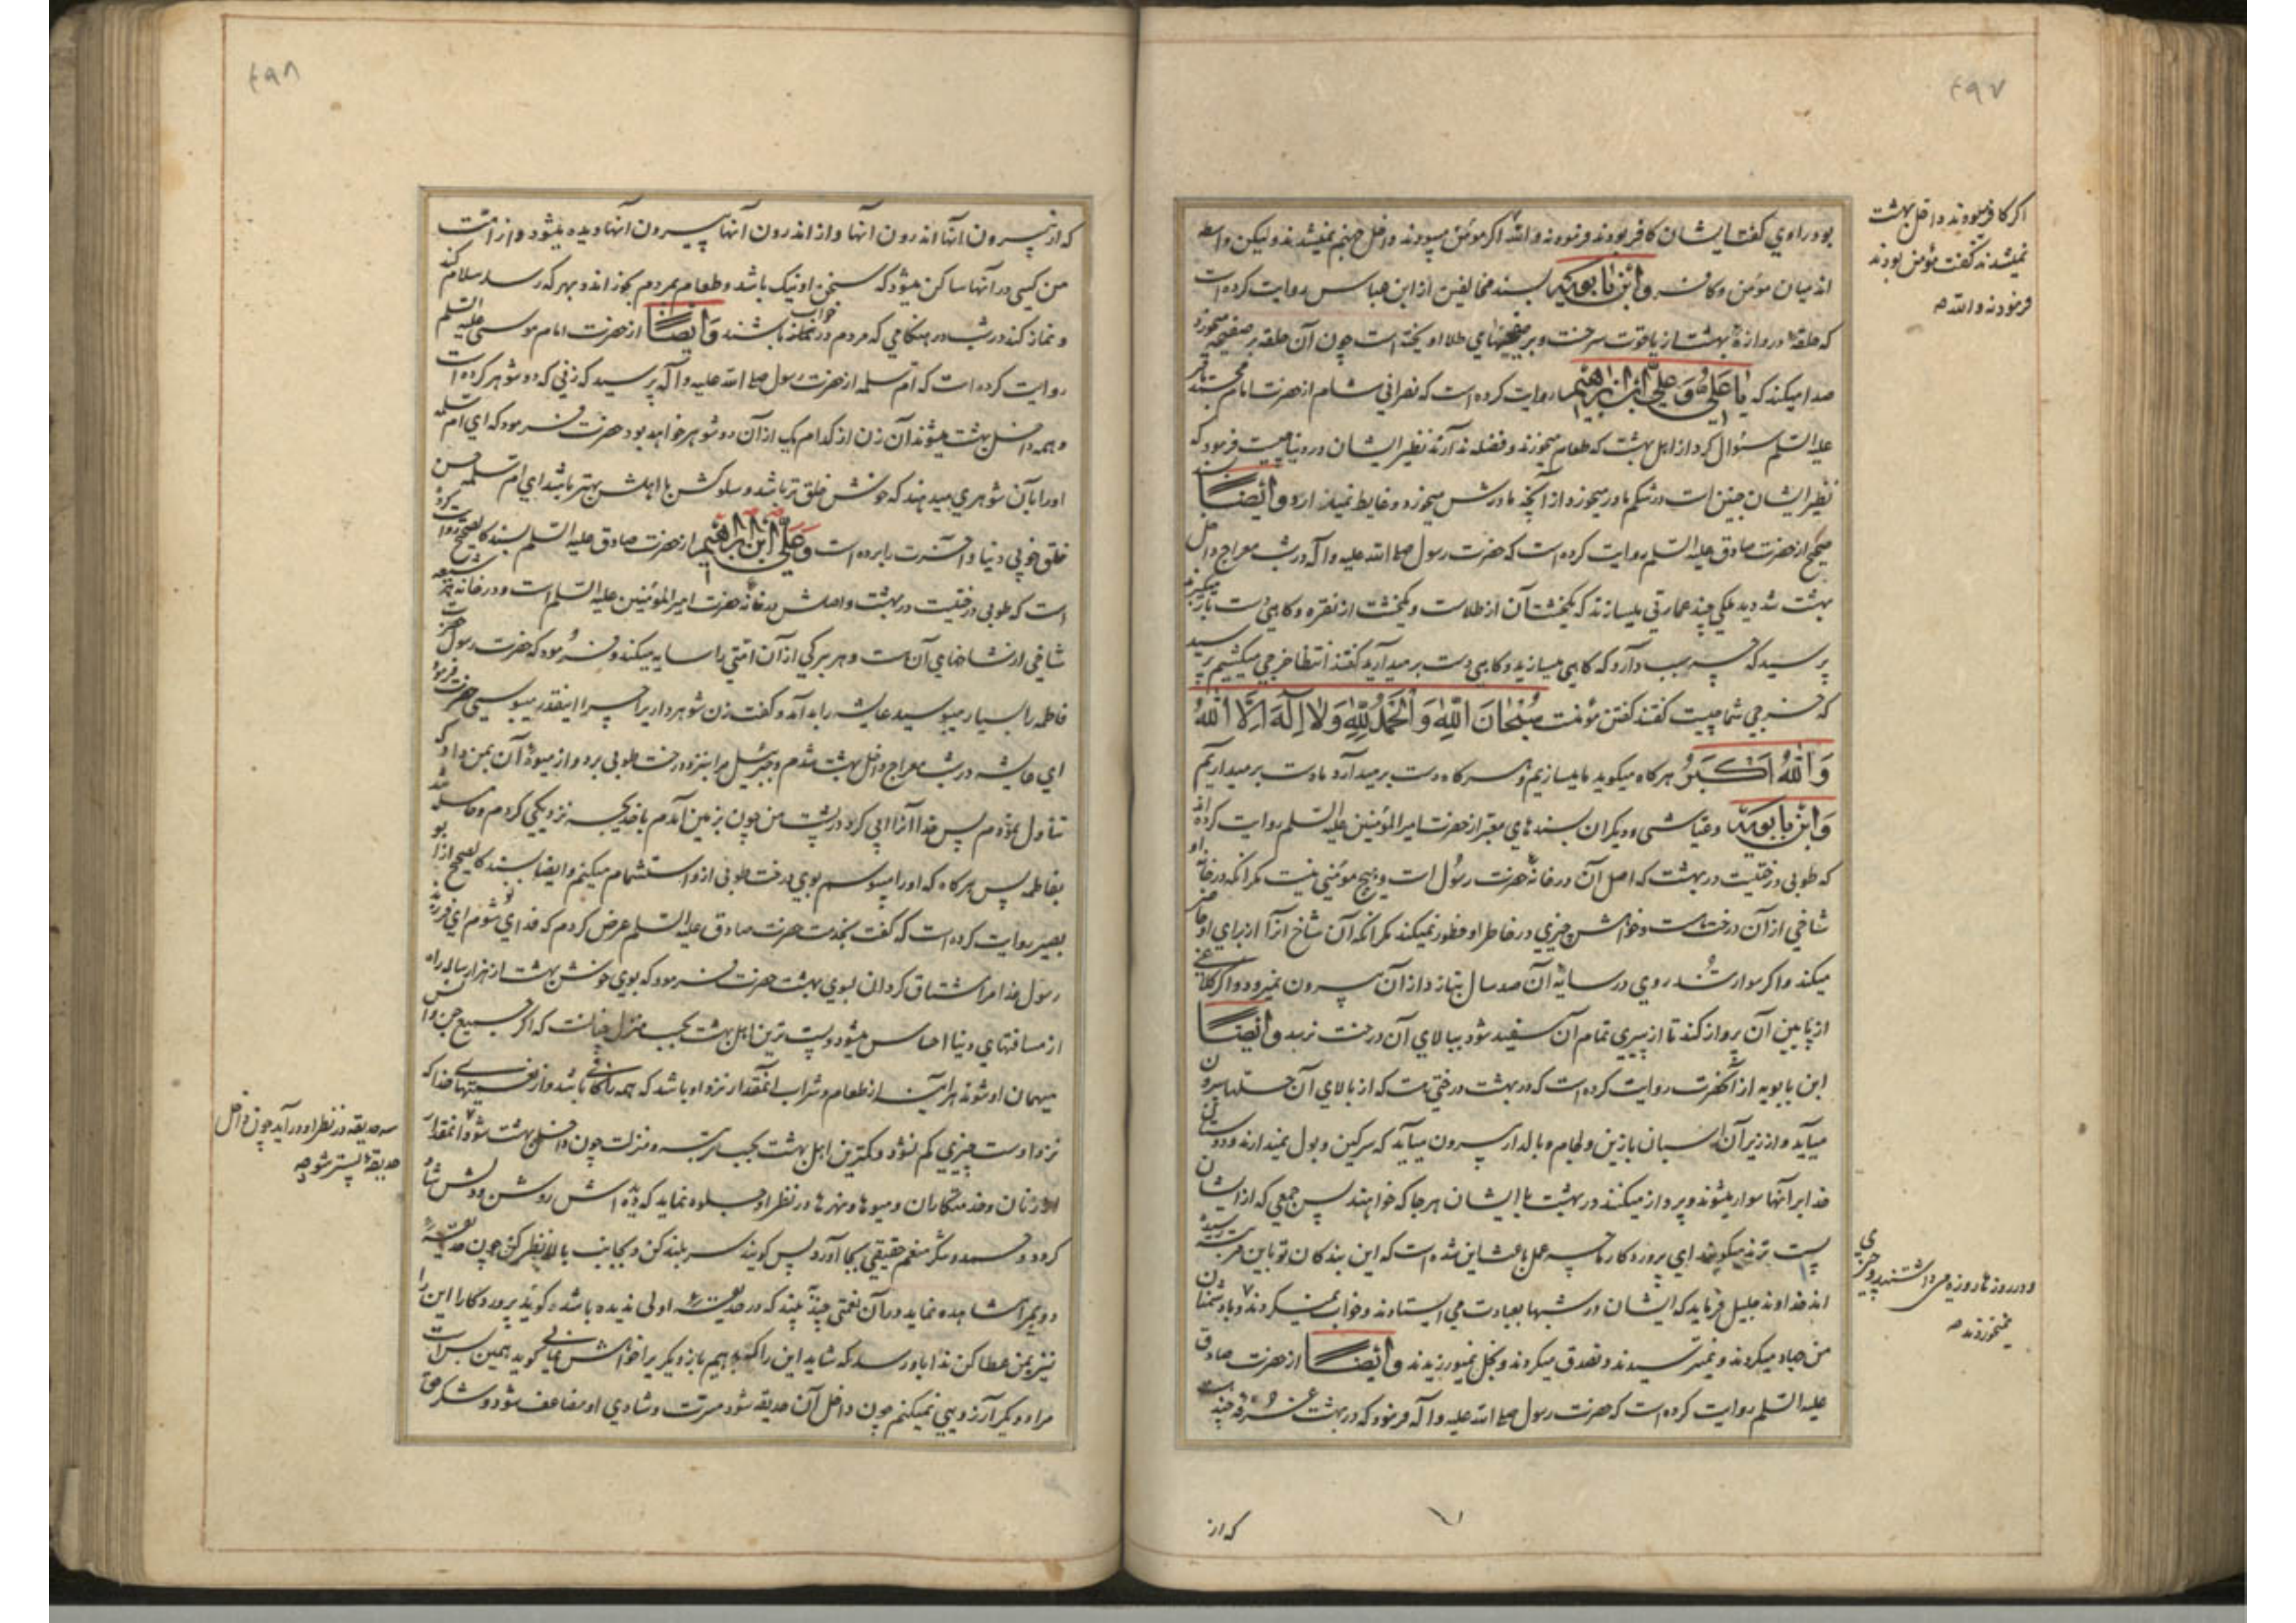 ۴۹۷
اگر کافر میبودند داخل بهشت
نمیشدند گفت مؤمن بودند
فرمودند والله
بود راوی گفت ایشان کافر بودند فرمودند والله اگر مؤمن میبودند داخل جهنم نمیشدند ولیکن واسطه
اند میان مؤمن و کافر و ابن بابویه بسند مخالفین از ابن عباس روایت کرده است
که حلقه دروازهٔ بهشت از یاقوت سرخست و بر صفحهای طلا اویخته است چون آن حلقه بر صفحه میخورد
صدا میکند که یا علی و علی ابن ابراهیم روایت کرده است که نصرانی شام از حضرت امام محمد باقر
علیه السلم سئوال کرد از اهل بهشت که طعام میخورند و فضله ندارند نظیر ایشان در دنیا چیست فرمود که
نظیر ایشان جنین است در شکم مادر میخورد از آنچه مادرش میخورد و غایط نمیدارد و ایضا بسند
صحیح از حضرت صادق علیه السلم روایت کرده است که حضرت رسول صلی الله علیه و آله در شب معراج داخل
بهشت شد دید ملکی چند عمارتی میسازند که یکخشت آن از طلاست و یکخشت از نقره و گاهی دست باز میگیرند
پرسید که چه سبب دارد که گاهی میسازید و گاهی دست بر میدارید گفتند انتظار خرجی میکشیم پرسید
که خرجی شما چیست گفتند گفتن مؤمنت سُبْحَانَ اللهِ وَ الْحَمْدُ لِلّٰهِ وَلَا اِلٰهَ اِلَّا اللهُ
وَ اللهُ اَکْبَرُ هر گاه میگوید ما میسازیم و هر گاه دست بر میدارد ما دست بر میداریم
وَ ابْن بابویه و عیاشی و دیگران بسندهای معتبر از حضرت امیر المؤمنین علیه السلم روایت کرده اند
که طوبی درختیست در بهشت که اصل آن در خانهٔ حضرت رسول است و هیچ مؤمنی نیست مگر انکه در خانه او
شاخی از آن درخت هست و خواهش چیزی در خاطر او خطور نمیکند مگر انکه آن شاخ انرا از برای او حاضر
میکند و اگر سوار تندروی در سایهٔ آن صد سال بتازد از آن بیرون نمیرود و اگر کلاغی
از پایین آن پرواز کند تا از پیری تمام آن سفید شود ببالای آن درخت نرسد و ایضا
ابن بابویه از آنحضرت روایت کرده است که در بهشت درختی هست که از بالای آن حلها بیرون
میاید و از زیر آن اسبان با زین و لجام و بالدار بیرون میاید که سرگین و بول نمیدارند و دوستان
خدا بر آنها سوار میشوند و پرواز میکنند در بهشت با ایشان هر جا که خواهند پس جمعی که از ایشان
پست ترند میگویند ای پروردگار ما چه عمل باعث این شده است که این بندگان تو باین مرتبه رسیده
اند خداوند جلیل فرماید که ایشان در شبها بعبادت می ایستادند و خواب نمیکردند و با دشمنان
من جهاد میکردند و نمیترسیدند و تصدق میکردند و بخل نمیورزیدند و ایضا از حضرت صادق
علیه السلم روایت کرده است که حضرت رسول صلی الله علیه و آله فرمود که در بهشت غرفه چند هست
و در روزها روزه می داشتند و چیزی
نمیخوردند
که از
۴۹۸
که از بیرون آنها اندرون آنها و از اندرون آنها بیرون آنها دیده میشود و از امت
من کسی در آنها ساکن میشود که سخن او نیک باشد و طعام بمردم بخوراند و بهر که رسد سلام کند
و نماز کند در شب در هنگامی که مردم در خواب باشند و ایضا از حضرت امام موسی علیه السلم
روایت کرده است که ام سلمه از حضرت رسول صلی الله علیه و آله پرسید که زنی که دو شوهر کرده است
و همه داخل بهشت میشوند آن زن از کدام یک از آن دو شوهر خواهد بود حضرت فرمود که ای ام سلمه
او را بآن شوهری میدهند که خوش خلق تر باشد و سلوکش با اهلش بهتر باشد ای ام سلمه حسن
خلق خوبی دنیا و آخرت را برده است و علی ابن ابراهیم از حضرت صادق علیه السلم بسند کالصحیح روایت کرده
است که طوبی درختیست در بهشت و اصلش در خانه حضرت امیر المؤمنین علیه السلم است و در خانه هر شیعه
شاخی از شاخهای آن هست و هر برگی از آن امتی را سایه میکند و فرمود که حضرت رسول
فاطمه را بسیار میبوسید عایشه را بد آمد و گفت زن شوهر دار را چرا اینقدر میبوسی حضرت فرمود
ای عایشه در شب معراج داخل بهشت شدم و جبرئیل مرا بنزد درخت طوبی برد و از میوهٔ آن بمن داد که
تناول نمودم پس خدا آنرا آبی کرد در پشت من چون بزمین آمدم با خدیجه نزدیکی کردم و حامله شد
بفاطمه پس هر گاه که او را میبوسم بوی درخت طوبی از او استشمام میکنم و ایضا بسند کالصحیح از ابو
بصیر روایت کرده است که گفت بخدمت حضرت صادق علیه السلم عرض کردم که فدای تو شوم ای فرزند
رسول خدا مرا مشتاق گردان ببوی بهشت حضرت فرمود که بوی خوش بهشت از هزار ساله راه
از مسافتهای دنیا احساس میشود و پست ترین اهل بهشت بحسب منزل چنانست که اگر جمیع جن و انس
میهمان او شوند هر آینه از طعام و شراب آنقدار نزد او باشد که همه را کافی باشد و از نعمتها خدا که
نزد اوست چیزی کم نشود و کمترین اهل بهشت بحسب رتبه و منزلت چون داخل بهشت شود انمقدار
از زنان و خدمتکاران و میوها و نهرها در نظر او جلوه نماید که دیده اش روشن و دلش شاد
گردد و حمد و شکر منعم حقیقی بجا آورد پس گویند سر بلند کن و بجانب بالا نظر کن چون حدیقه
دویم را مشاهده نماید در آن نعمتی چند بیند که در حدیقه اولی ندیده باشد گوید پروردگارا این را
نیز بمن عطا کن ندا باو رسد که شاید این را که بدهیم باز دیگری را خواهش نمائی گوید همین بس است
مرا و دیگر آرزویی نمیکنم چون داخل آن حدیقه شود مسرت و شادی او مضاعف شود و شکر حق
سه حدیقه در نظر او در آید چون داخل
حدیقهٔ پستتر شود